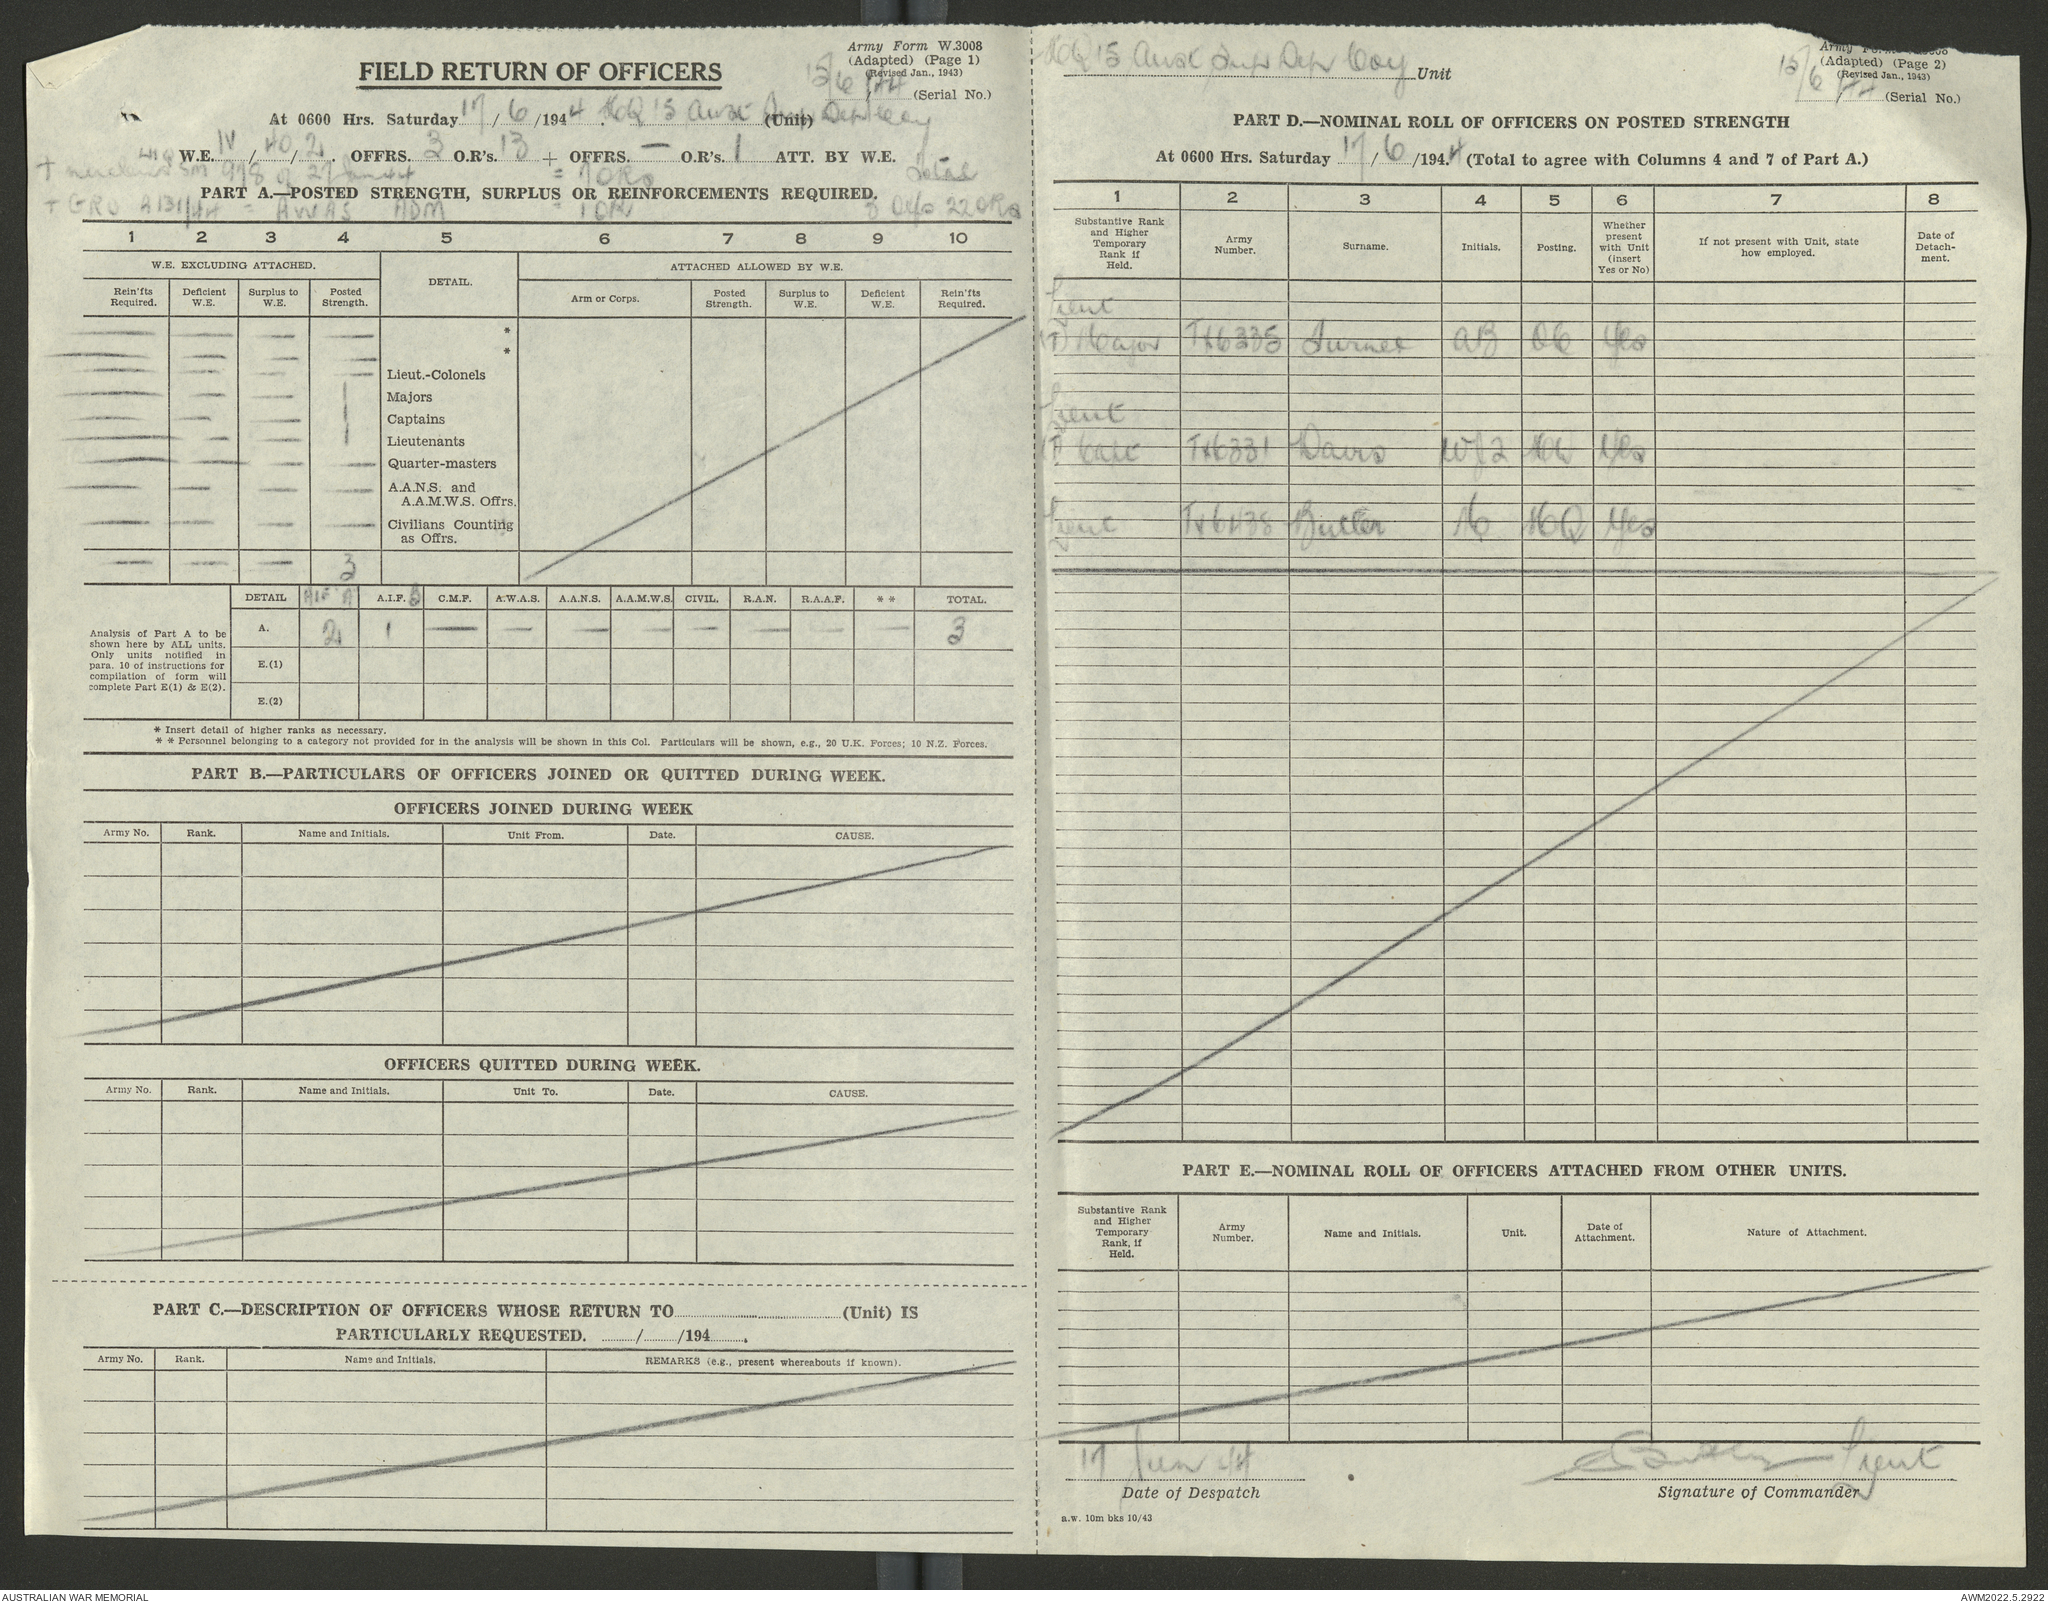 Army Form W.3008
(Adapted) (Page 1)
(Revised Jan., 1943)
15/6/44 (Serial No.)
FIELD RETURN OF OFFICERS
At 0600 Hrs. Saturday 17/6/1944. HQ 15 Aust Sup Dep Coy (Unit)
W.E. IV/40/2. OFFRS. 3 O.R's. 13 + OFFRS. — O.R's. 1 ATT. BY W.E.
SM 978 of 27 Jan 44 = 7 ORs Total
PART A.—POSTED STRENGTH, SURPLUS OR REINFORCEMENTS REQUIRED.
+ GRO A131/44 = AWAS ADM = 1 OR 3 Offs 22 ORs
1 2 3 4 5 6 7 8 9 10
W.E. EXCLUDING ATTACHED. DETAIL. ATTACHED ALLOWED BY W.E.
Rein'fts Required. Deficient W.E. Surplus to W.E. Posted Strength. Arm or Corps. Posted Strength. Surplus to W.E. Deficient W.E. Rein'fts Required.
— — — — *
— — — — *
— — — — Lieut.-Colonels
— — — 1 Majors
— — — 1 Captains
— — — 1 Lieutenants
— — — — Quarter-masters
— — — — A.A.N.S. and
A.A.M.W.S. Offrs.
— — — — Civilians Counting
as Offrs.
— — — 3
DETAIL AIF A A.I.F. B C.M.F. A.W.A.S. A.A.N.S. A.A.M.W.S. CIVIL. R.A.N. R.A.A.F. * * TOTAL.
A. 2 1 — — — — — — — — 3
Analysis of Part A to be
shown here by ALL units.
Only units notified in
para. 10 of instructions for
compilation of form will
complete Part E(1) & E(2).
E.(1)
E.(2)
* Insert detail of higher ranks as necessary.
* * Personnel belonging to a category not provided for in the analysis will be shown in this Col. Particulars will be shown, e.g., 20 U.K. Forces; 10 N.Z. Forces.
PART B.—PARTICULARS OF OFFICERS JOINED OR QUITTED DURING WEEK.
OFFICERS JOINED DURING WEEK
Army No. Rank. Name and Initials. Unit From. Date. CAUSE.
OFFICERS QUITTED DURING WEEK.
Army No. Rank. Name and Initials. Unit To. Date. CAUSE.
PART C.—DESCRIPTION OF OFFICERS WHOSE RETURN TO (Unit) IS
PARTICULARLY REQUESTED. / /194 .
Army No. Rank. Name and Initials. REMARKS (e.g., present whereabouts if known).
HQ 15 Aust Sup Dep Coy Unit
Army Form W.3008
(Adapted) (Page 2)
(Revised Jan., 1943)
15/6/44 (Serial No.)
PART D.—NOMINAL ROLL OF OFFICERS ON POSTED STRENGTH
At 0600 Hrs. Saturday 17/6/1944. (Total to agree with Columns 4 and 7 of Part A.)
1 2 3 4 5 6 7 8
Substantive Rank and Higher Temporary Rank if Held. Army Number. Surname. Initials. Posting. Whether present with Unit (insert Yes or No) If not present with Unit, state how employed. Date of Detach- ment.
Lieut
(T) Major TX6335 Turner AB OC Yes
Lieut
(T) Capt TX6331 Davis Yes
Lieut Butler HQ Yes
PART E.—NOMINAL ROLL OF OFFICERS ATTACHED FROM OTHER UNITS.
Substantive Rank and Higher Temporary Rank, if Held. Army Number. Name and Initials. Unit. Date of Attachment. Nature of Attachment.
17 Jun 44 Butler Lieut
Date of Despatch Signature of Commander
a.w. 10m bks 10/43
AUSTRALIAN WAR MEMORIAL AWM2022.5.2922